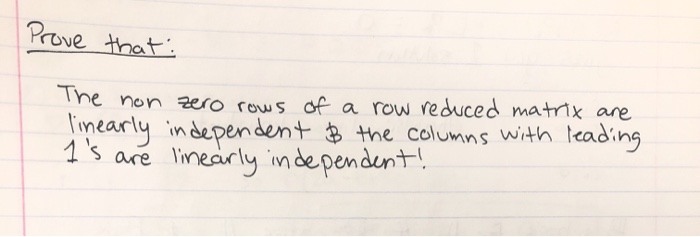 Prove that:
The non zero rows of a row reduced matrix are
linearly independent & the columns with leading
1's are linearly independent!